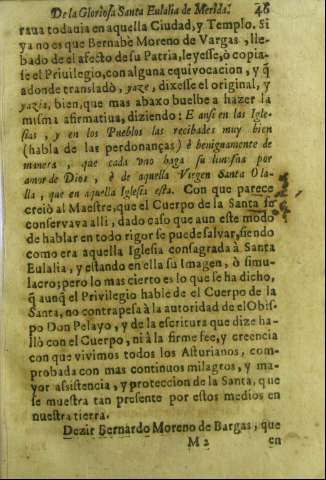 De la Gloriosa Santa Eulalia de Merida. 46
raua todauia en aquella Ciudad, y Templo. Si
ya no es que Bernabè Moreno de Vargas, lle-
bado de el afecto de su Patria, leyesse, ò copia-
se el Priuilegio, con alguna equivocacion, y q̃
adonde transladò, yaze, dixesse el original, y
yazia, bien, que mas abaxo buelbe a hazer la
misma afirmatiua, diziendo: E ansi en las Igle-
sias, y en los Pueblos las recibades muy bien
(habla de las perdonanças) è benignamente de
manera, que cada vno haga su limosna por
amor de Dios, è de aquella Virgen Santa Ola-
lla, que en aquella Iglesia esta. Con que parece
creiò al Maestre, que el Cuerpo de la Santa se
conservava alli, dado caso que aun este modo
de hablar en todo rigor se puede salvar, siendo
como era aquella Iglesia consagrada à Santa
Eulalia, y estando en ella su Imagen, ò simu-
lacro; pero lo mas cierto es lo que se ha dicho,
q̃ aunq̃ el Privilegio hable de el Cuerpo de la
Santa, no contrapesa à la autoridad de el Obis-
po Don Pelayo, y de la escritura que dize ha-
llò con el Cuerpo, ni à la firme fee, y creencia
con que vivimos todos los Asturianos, com-
probada con mas continuos milagros, y ma-
yor assistencia, y proteccion de la Santa, que
se muestra tan presente por estos medios en
nuestra tierra.
Dezir Bernardo Moreno de Bargas, que
M 2 en